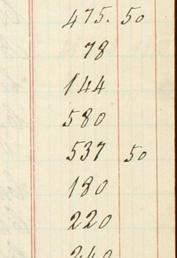 475. 50
78
144
580
537 50
180
220
240